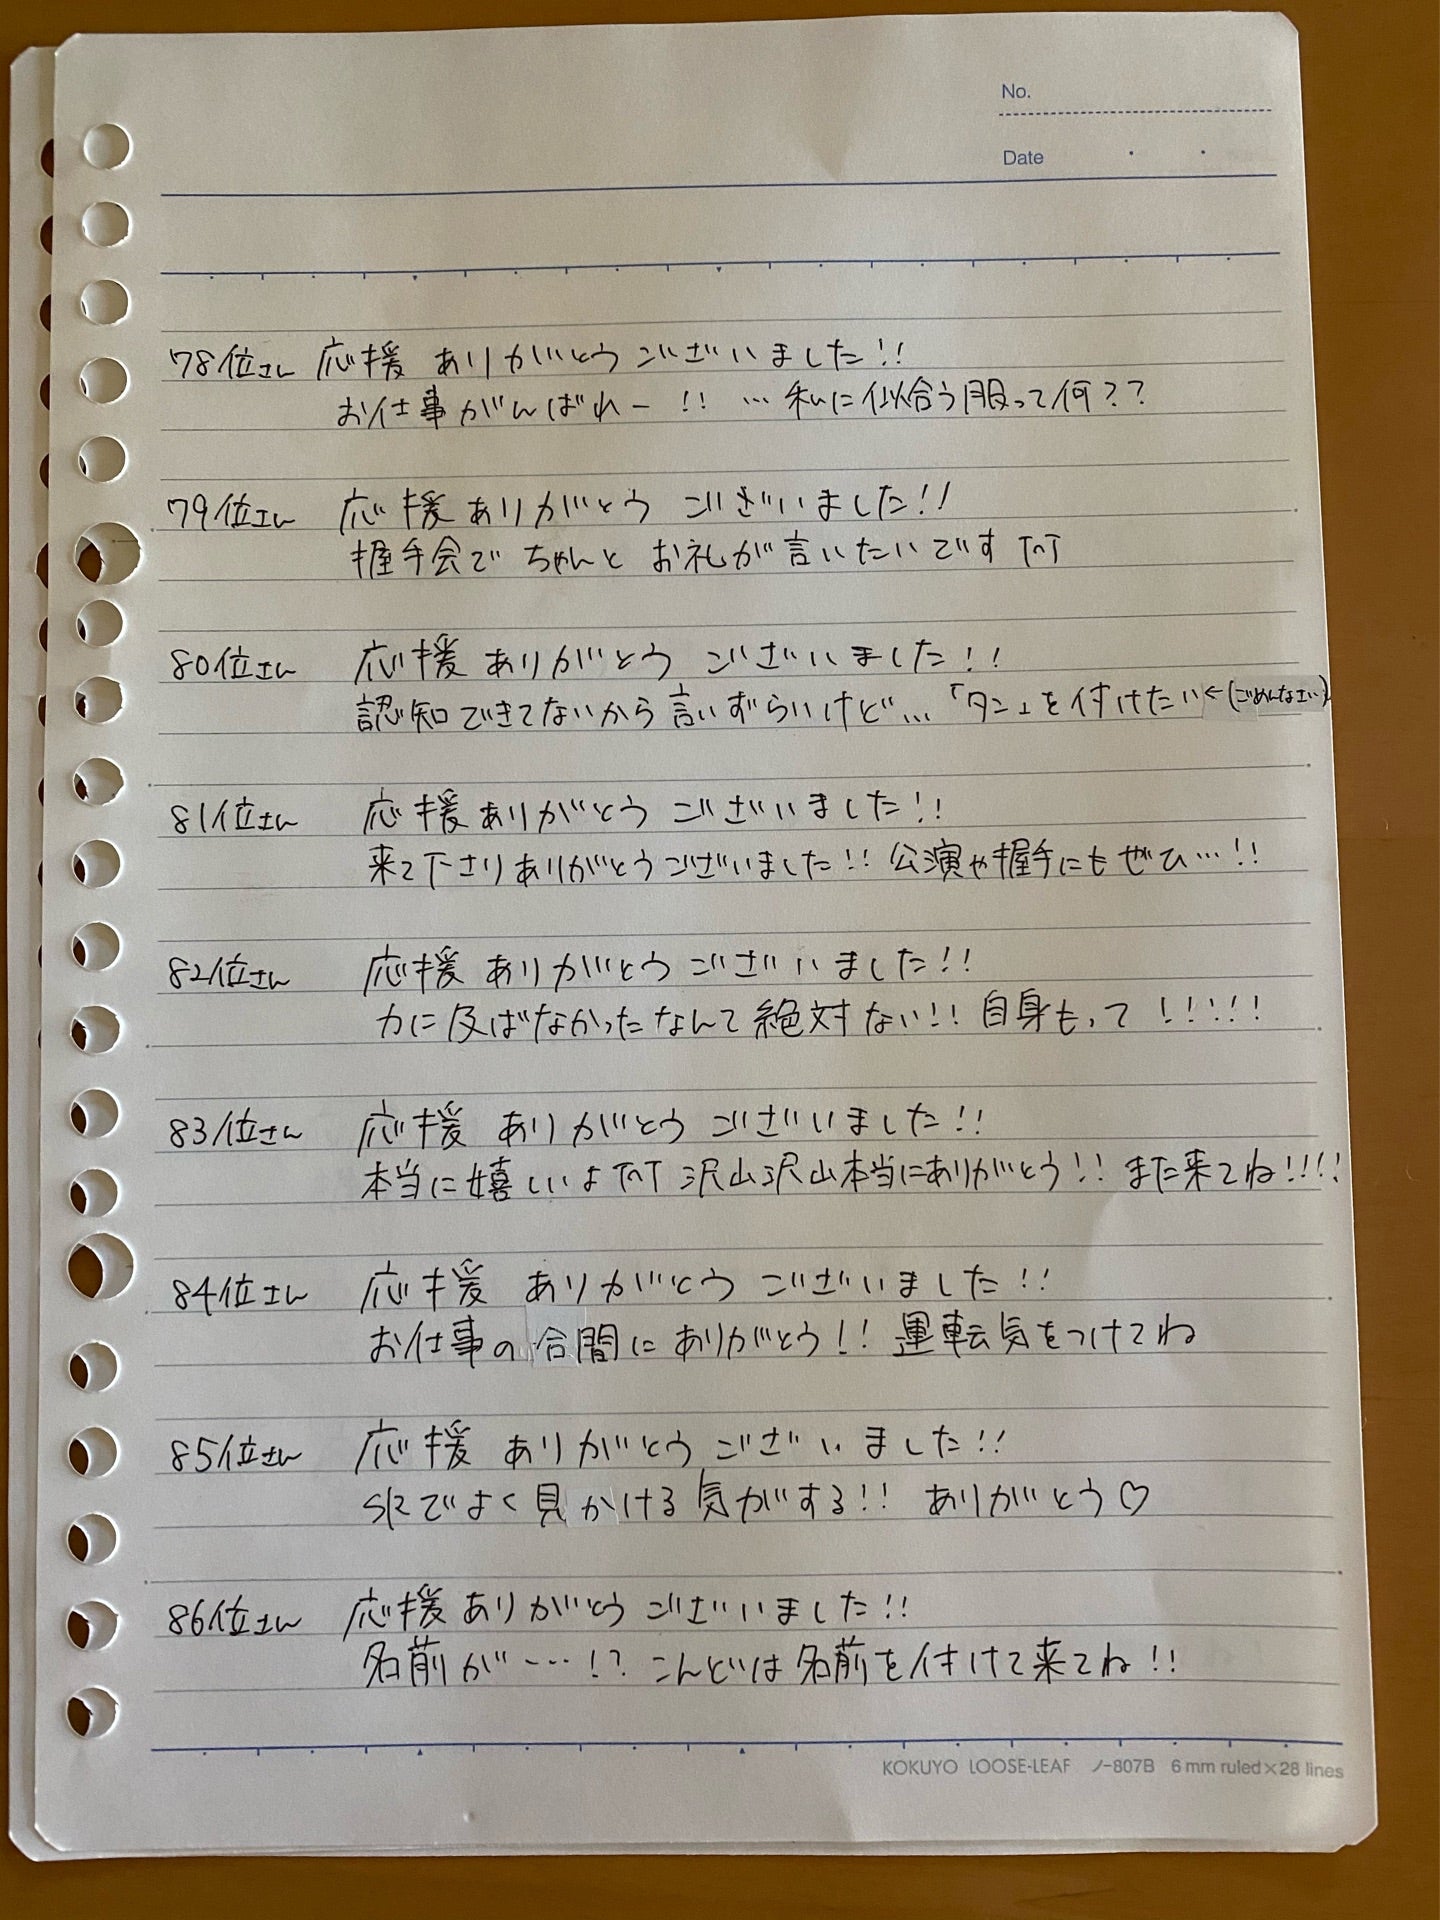 No.
Date
78位さん 応援 ありがとうございました!!
お仕事がんばれー!! …私に似合う服って何??
79位さん 応援ありがとう ございました!!
握手会で ちゃんと お礼が言いたいです TnT
80位さん 応援 ありがとう ございました!!
認知できてないから言いずらいけど…「タン」を付けたい←(ごめんなさい)
81位さん 応援ありがとう ございました!!
来て下さりありがとうございました!! 公演や握手にもぜひ…!!
82位さん 応援 ありがとうございました!!
力に及ばなかったなんて絶対ない!! 自身もって!!!!!
83位さん 応援 ありがとう ございました!!
本当に嬉しいよTnT 沢山沢山本当にありがとう!! また来てね!!!!
84位さん 応援 ありがとう ございました!!
お仕事の合間にありがとう!! 運転気をつけてね
85位さん 応援 ありがとう ございました!!
SRでよく見かける気がする!! ありがとう♡
86位さん 応援ありがとう ございました!!
名前が…!? こんどは名前を付けて来てね!!
KOKUYO LOOSE-LEAF ノ-807B 6 mm ruled×28 lines